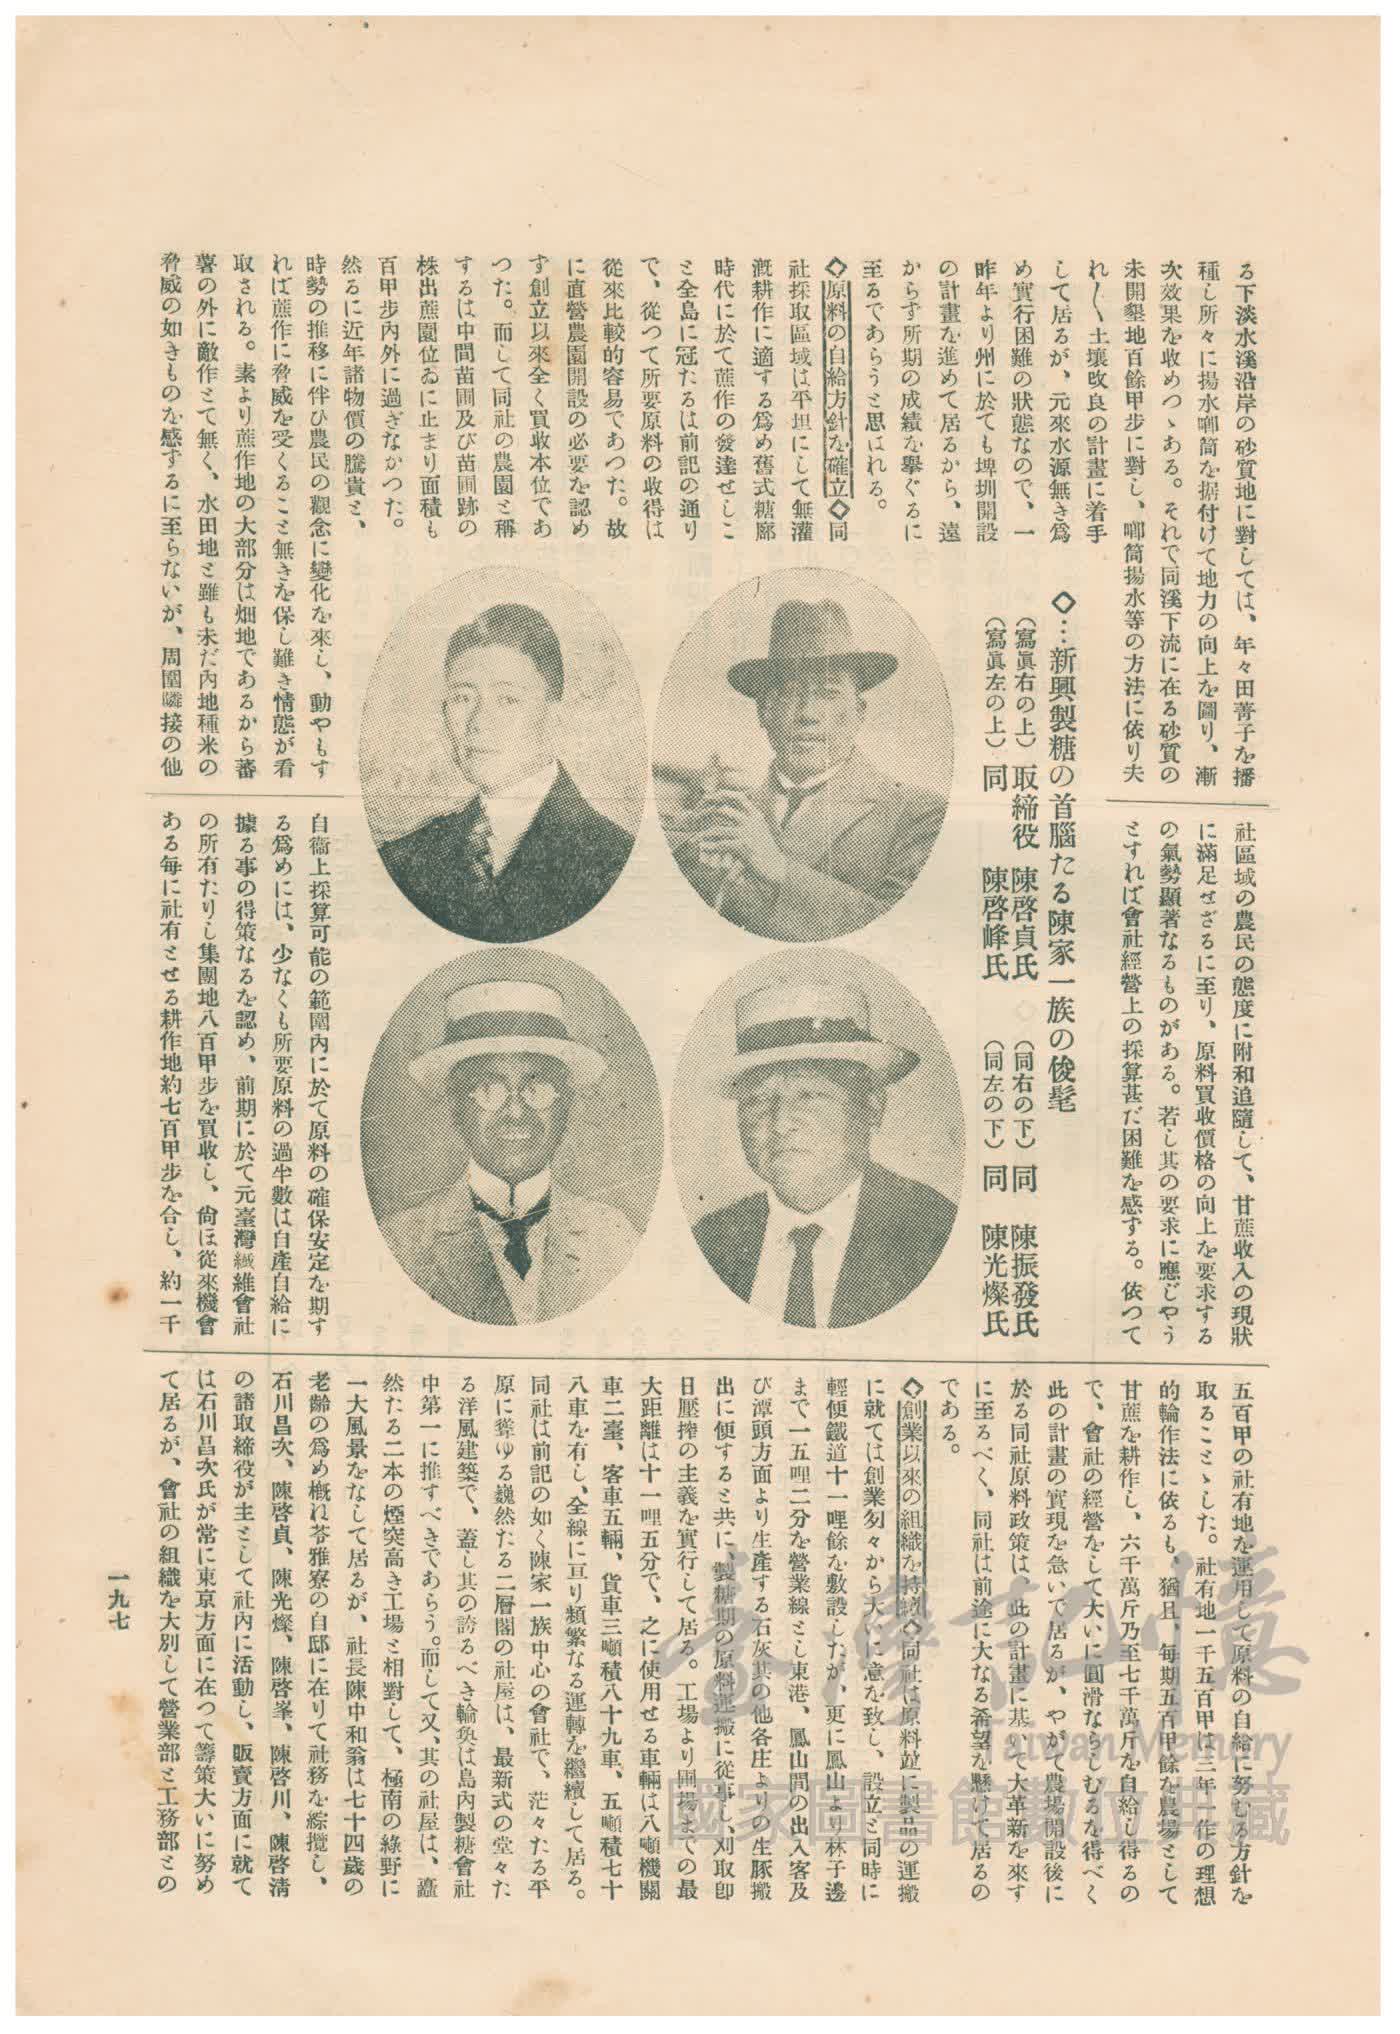 る下淡水溪沿岸の砂質地に對しては、年々田菁子を播
種し所々に揚水喞筒を据付けて地力の向上を圖り、漸
次效果を收めつゝある。それで同溪下流に在る砂質の
未開墾地百餘甲步に對し、喞筒揚水等の方法に依り夫
れ〳〵土壤改良の計畫に着手
して居るが、元來水源無き爲
め實行困難の狀態なので、一
昨年より州に於ても埤圳開設
の計畫を進めて居るから、遠
からず所期の成績を擧ぐるに
至るであらうと思はれる。
◇原料の自給方針を確立◇同
社採取區域は平坦にして無灌
漑耕作に適する爲め舊式糖廍
時代に於て蔗作の發達せしこ
と全島に冠たるは前記の通り
で、從つて所要原料の收得は
從來比較的容易であつた。故
に直營農園開設の必要を認め
ず創立以來全く買收本位であ
つた。而して同社の農園と稱
するは中間苗圃及び苗圃跡の
株出蔗園位ゐに止まり面積も
百甲步內外に過ぎなかつた。
然るに近年諸物價の騰貴と、
時勢の推移に伴ひ農民の觀念に變化を來し、動やもす
れば蔗作に脅威を受くること無きを保し難き情態が看
取される。素より蔗作地の大部分は畑地であるから蕃
薯の外に敵作とて無く、水田地と雖も未だ內地種米の
脅威の如きものを感ずるに至らないが、周圍隣接の他
◇…新興製糖の首腦たる陳家一族の俊髦
（寫眞右の上）取締役 陳啓貞氏 ◇ （同右の下）同 陳振發氏
（寫眞左の上）同 陳啓峰氏 （同左の下）同 陳光燦氏
社區域の農民の態度に附和追隨して、甘蔗收入の現狀
に滿足せざるに至り、原料買收價格の向上を要求する
の氣勢顯著なるものがある。若し其の要求に應じやう
とすれば會社經營上の採算甚だ困難を感ずる。依つて
自衞上採算可能の範圍內に於て原料の確保安定を期す
る爲めには、少なくも所要原料の過半數は自產自給に
據る事の得策なるを認め、前期に於て元臺灣纎維會社
の所有たりし集團地八百甲步を買收し、尙ほ從來機會
ある每に社有とせる耕作地約七百甲步を合し、約一千
五百甲の社有地を運用して原料の自給に努むる方針を
取ることゝした。社有地一千五百甲は三年一作の理想
的輪作法に依るも、猶且、每期五百甲餘を農場として
甘蔗を耕作し、六千萬斤乃至七千萬斤を自給し得るの
で、會社の經營をして大いに圓滑ならしむるを得べく
此の計畫の實現を急いで居るが、やがて農場開設後に
於る同社原料政策は、此の計畫に基いて大革新を來す
に至るべく、同社は前途に大なる希望を懸けて居るの
である。
◇創業以來の組織を持續◇同社は原料並に製品の運搬
に就ては創業匆々から大いに意を致し、設立と同時に
輕便鐵道十一哩餘を敷設したが、更に鳳山より林子邊
まで一五哩二分を營業線とし東港、鳳山間の出入客及
び潭頭方面より生產する石灰其の他各庄よりの生豚搬
出に便すると共に、製糖期の原料運搬に從事し、刈取卽
日壓搾の主義を實行して居る。工場より圃場までの最
大距離は十一哩五分で、之に使用せる車輛は八噸機關
車二臺、客車五輛、貨車三噸積八十九車、五噸積七十
八車を有し、全線に亘り頻繁なる運轉を繼續して居る。
同社は前記の如く陳家一族中心の會社で、茫々たる平
原に聳ゆる巍然たる二層閣の社屋は、最新式の堂々た
る洋風建築で、蓋し其の誇るべき輪奐は島內製糖會社
中第一に推すべきであらう。而して又、其の社屋は、矗
然たる二本の煙突高き工場と相對して、極南の綠野に
一大風景をなして居るが、社長陳中和翁は七十四歲の
老齡の爲め槪れ苓雅寮の自邸に在りて社務を綜攬し、
石川昌次、陳啓貞、陳光燦、陳啓峯、陳啓川、陳啓淸
の諸取締役が主として社內に活動し、販賣方面に就て
は石川昌次氏が常に東京方面に在つて籌策大いに努め
て居るが、會社の組織を大別して營業部と工務部との
一九七
臺灣記憶
Taiwan Memory
國家圖書館數位典藏